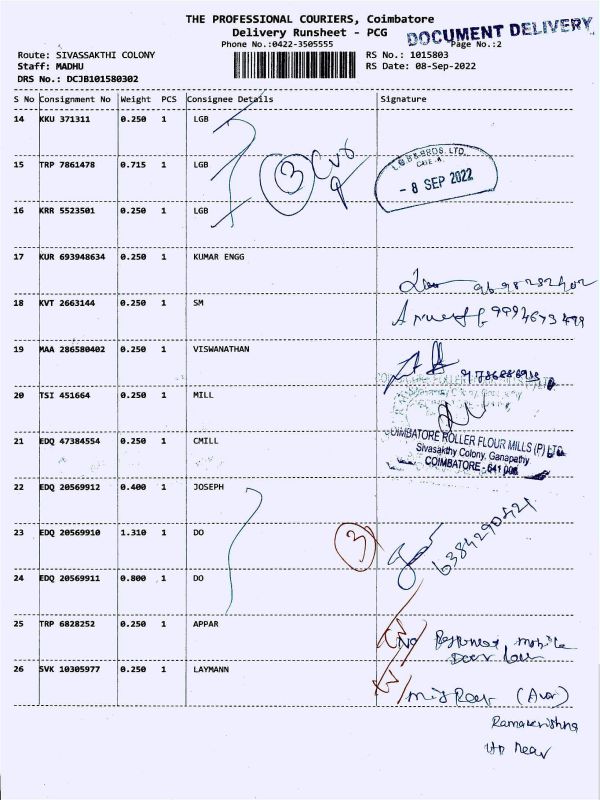 THE PROFESSIONAL COURIERS, Coimbatore
Delivery Runsheet - PCG
DOCUMENT DELIVERY
Phone No.:0422-3505555
Page No.:2
Route: SIVASSAKTHI COLONY
RS No.: 1015803
Staff: MADHU
RS Date: 08-Sep-2022
DRS No.: DCJB101580302
S No Consignment No Weight PCS Consignee Details Signature
14 KKU 371311 0.250 1 LGB
15 TRP 7861478 0.715 1 LGB
3
L.G.B & BROS. LTD.
- 8 SEP 2022
16 KRR 5523501 0.250 1 LGB
17 KUR 693948634 0.250 1 KUMAR ENGG
18 KVT 2663144 0.250 1 SM
19 MAA 286580402 0.250 1 VISWANATHAN
20 TSI 451664 0.250 1 MILL
21 EDQ 47384554 0.250 1 CMILL
COIMBATORE ROLLER FLOUR MILLS (P) LTD
Sivasakthy Colony, Ganapathy
COIMBATORE - 641 006
22 EDQ 20569912 0.400 1 JOSEPH
23 EDQ 20569910 1.310 1 DO
3
24 EDQ 20569911 0.800 1 DO
25 TRP 6828252 0.250 1 APPAR
No mobile
Door
26 SVK 10305977 0.250 1 LAYMANN
Ramakrishna